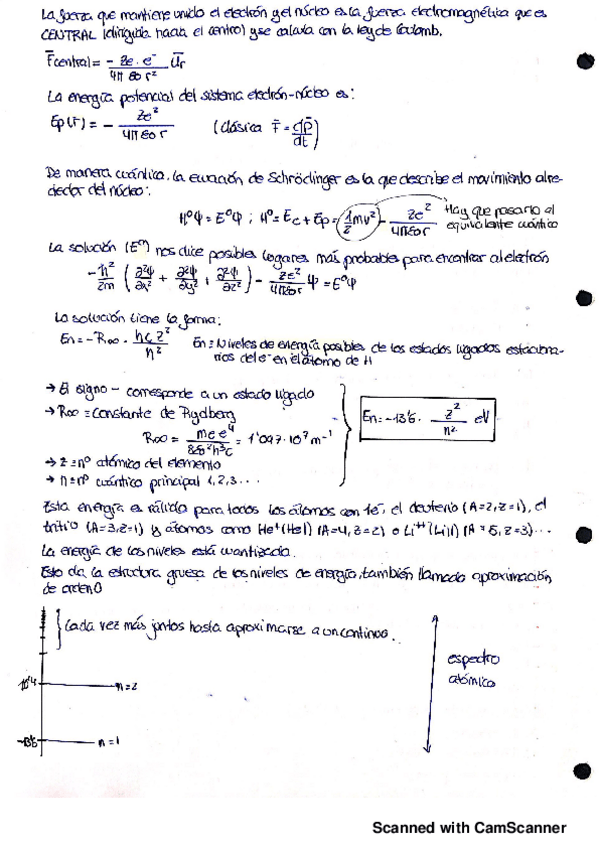 La fuerza que mantiene unido el electrón y el núcleo es la fuerza electromagnética que es
CENTRAL (dirigida hacia el centro) y se calcula con la ley de Coulomb.
F̄central = - Ze·e⁻ / 4πε₀r² ūr
La energía potencial del sistema electrón-núcleo es:
Ep(r) = - Ze² / 4πε₀r (Clásica F̄ = dp̄/dt)
De manera cuántica, la ecuación de Schrödinger es la que describe el movimiento alre-
dedor del núcleo:
H⁰Ψ = E⁰Ψ ; H⁰ = Ec + Ep = 1/2 mv² - Ze² / 4πε₀r Hay que pasarlo al
equivalente cuántico
La solución (E⁰) nos dice posibles lugares más probables para encontrar al electrón
-ħ²/2m (∂²Ψ/∂x² + ∂²Ψ/∂y² + ∂²Ψ/∂z²) - Ze²/4πε₀r Ψ = E⁰Ψ
La solución tiene la forma:
En = -R∞ · hcz²/n² En = Niveles de energía posibles de los estados ligados estaciona-
rios del e⁻ en el átomo de H
→ El signo - corresponde a un estado ligado
→ R∞ = Constante de Rydberg
R∞ = me e⁴ / 8ε₀²h³c = 1'097·10⁷ m⁻¹
En = -13'6 · z²/n² eV
→ z = nº atómico del elemento
→ n = nº cuántico principal 1,2,3...
Esta energía es válida para todos los átomos con 1e⁻, el deuterio (A=2, z=1), el
tritio (A=3, z=1) y átomos como He⁺ (HeII) (A=4, z=2) o Li⁺⁺ (LiIII) (A=6, z=3)...
La energía de los niveles está cuantizada.
Esto da la estructura gruesa de los niveles de energía, también llamada aproximación
de orden 0
Cada vez más juntos hasta aproximarse a un continuo.
espectro
atómico
n=2
-13'6 n=1
Scanned with CamScanner